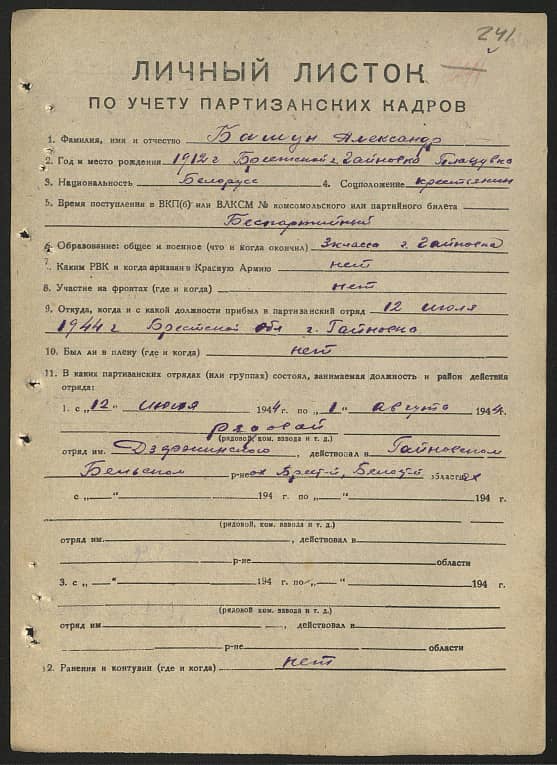 241
ЛИЧНЫЙ ЛИСТОК
ПО УЧЕТУ ПАРТИЗАНСКИХ КАДРОВ
1. Фамилия, имя и отчество Башун Александр
2. Год и место рождения 1912 г Брестской г. Гайновка
3. Национальность Белорусс 4. Соцположение крестьянин
5. Время поступления в ВКП(б) или ВЛКСМ № комсомольского или партийного билета
Беспартийный
6. Образование: общее и военное (что и когда окончил) 3 класса г. Гайновка
7. Каким РВК и когда призван в Красную Армию нет
8. Участие на фронтах (где и когда) нет
9. Откуда, когда и с какой должности прибыл в партизанский отряд 12 июля
1944 г Брестской обл г. Гайновка
10. Был ли в плену (где и когда) нет
11. В каких партизанских отрядах (или группах) состоял, занимаемая должность и район действия
отряда:
1. с „12“ июля 1944 г. по „1“ августа 1944 г.
рядовой
(рядовой, ком. взвода и т. д.)
отряд им. Дзержинского, действовал в Гайновском
Бельском р-не ах Брест-й, Белост-й областях
с „ “ 194 г. по „ “ 194 г.
(рядовой, ком. взвода и т. д.)
отряд им. , действовал в
р-не области
3. с „ “ 194 г. по „ “ 194 г.
(рядовой, ком. взвода и т. д.)
отряд им , действовал в
р-не области
12. Ранения и контузии (где и когда) нет